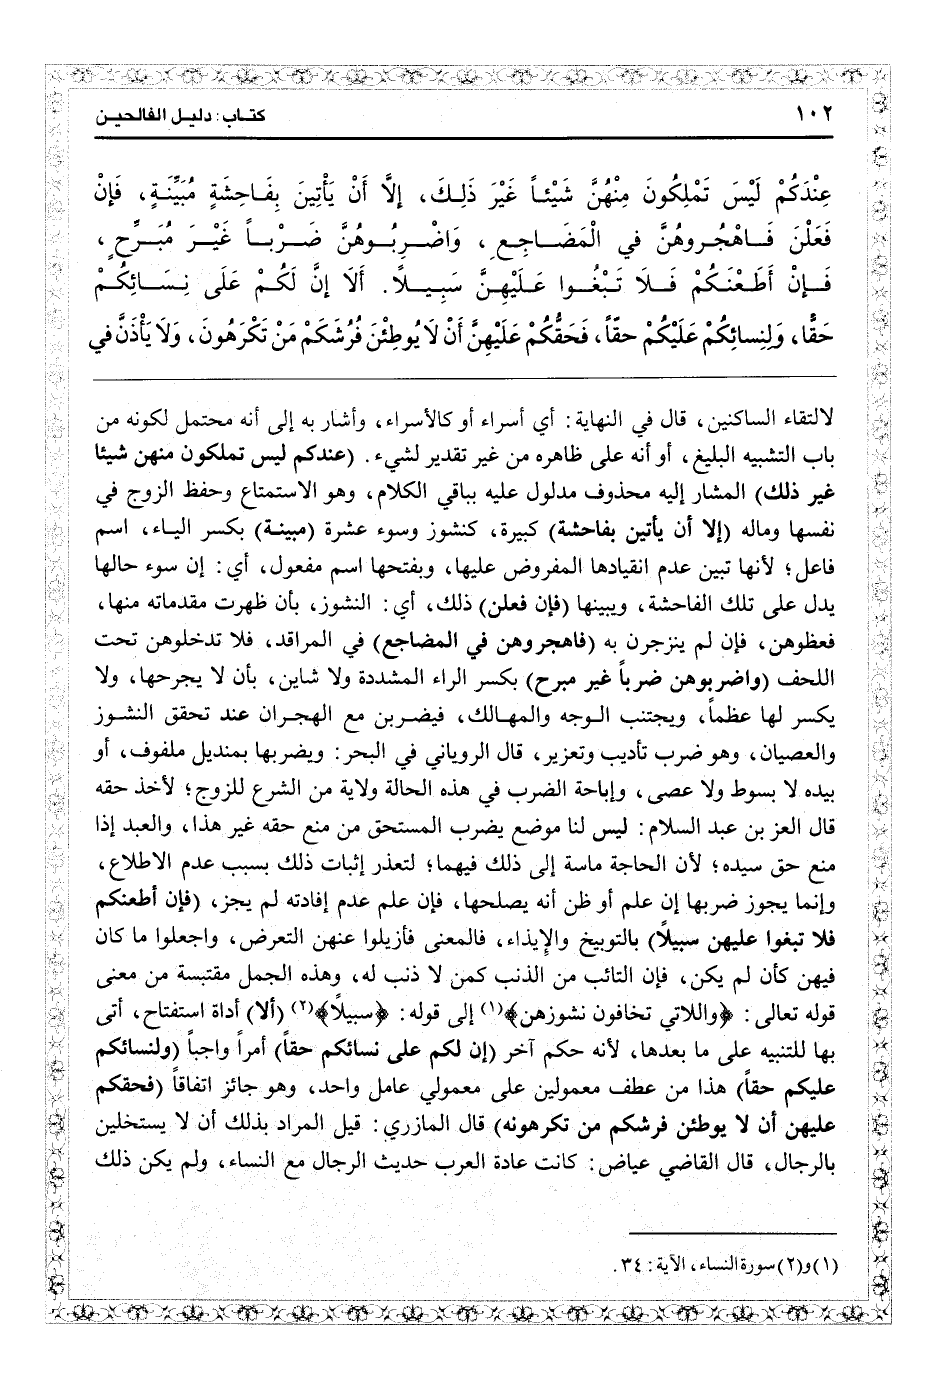 ١٠٢ كتاب: دليل الفالحين
عِنْدَكُمْ لَيْسَ تَمْلِكُونَ مِنْهُنَّ شَيْئاً غَيْرَ ذَلِكَ، إلاَّ أَنْ يَأْتِينَ بِفَاحِشَةٍ مُبَيِّنَةٍ، فَإنْ
فَعَلْنَ فَاهْجُروهُنَّ في الْمَضَاجِعِ، وَاضْرِبُوهُنَّ ضَرْباً غَيْرَ مُبَرِّحٍ،
فَإنْ أَطَعْنَكُمْ فَلا تَبْغُوا عَلَيْهِنَّ سَبِيلاً. أَلاَ إنَّ لَكُمْ عَلَى نِسَائِكُمْ
حَقًّا، وَلِنِسائِكُمْ عَلَيْكُمْ حقّاً، فَحَقُّكُمْ عَلَيْهِنَّ أَنْ لاَ يُوطِئْنَ فُرُشَكُمْ مَنْ تَكْرَهُونَ، وَلاَ يَأْذَنَّ في
لالتقاء الساكنين، قال في النهاية: أي أسراء أو كالأسراء، وأشار به إلى أنه محتمل لكونه من
باب التشبيه البليغ، أو أنه على ظاهره من غير تقدير لشيء. (عندكم ليس تملكون منهن شيئا
غير ذلك) المشار إليه محذوف مدلول عليه بباقي الكلام، وهو الاستمتاع وحفظ الزوج في
نفسها وماله (إلا أن يأتين بفاحشة) كبيرة، كنشوز وسوء عشرة (مبينة) بكسر الياء، اسم
فاعل؛ لأنها تبين عدم انقيادها المفروض عليها، وبفتحها اسم مفعول، أي: إن سوء حالها
يدل على تلك الفاحشة، ويبينها (فإن فعلن) ذلك، أي: النشوز، بأن ظهرت مقدماته منها،
فعظوهن، فإن لم ينزجرون به (فاهجروهن في المضاجع) في المراقد، فلا تدخلوهن تحت
اللحف (واضربوهن ضرباً غير مبرح) بكسر الراء المشددة ولا شاين، بأن لا يجرحها، ولا
يكسر لها عظماً، ويجتنب الوجه والمهالك، فيضربن مع الهجران عند تحقق النشوز
والعصيان، وهو ضرب تأديب وتعزير، قال الروياني في البحر: ويضربها بمنديل ملفوف، أو
بيده لا بسوط ولا عصى، وإباحة الضرب في هذه الحالة ولاية من الشرع للزوج؛ لأخذ حقه
قال العز بن عبد السلام: ليس لنا موضع يضرب المستحق من منع حقه غير هذا، والعبد إذا
منع حق سيده؛ لأن الحاجة ماسة إلى ذلك فيهما؛ لتعذر إثبات ذلك بسبب عدم الاطلاع،
وإنما يجوز ضربها إن علم أو ظن أنه يصلحها، فإن علم عدم إفادته لم يجز، (فإن أطعنكم
فلا تبغوا عليهن سبيلاً) بالتوبيخ والإيذاء، فالمعنى فأزيلوا عنهن التعرض، واجعلوا ما كان
فيهن كأن لم يكن، فإن التائب من الذنب كمن لا ذنب له، وهذه الجمل مقتبسة من معنى
قوله تعالى: ﴿واللاتي تخافون نشوزهن﴾(١) إلى قوله: ﴿سبيلاً﴾(٢) (ألا) أداة استفتاح، أتى
بها للتنبيه على ما بعدها، لأنه حكم آخر (إن لكم على نسائكم حقاً) أمراً واجباً (ولنسائكم
عليكم حقاً) هذا من عطف معمولين على معمولي عامل واحد، وهو جائز اتفاقاً (فحقكم
عليهن أن لا يوطئن فرشكم من تكرهونه) قال المازري: قيل المراد بذلك أن لا يستخلين
بالرجال، قال القاضي عياض: كانت عادة العرب حديث الرجال مع النساء، ولم يكن ذلك
(١) و(٢) سورة النساء، الآية: ٣٤.